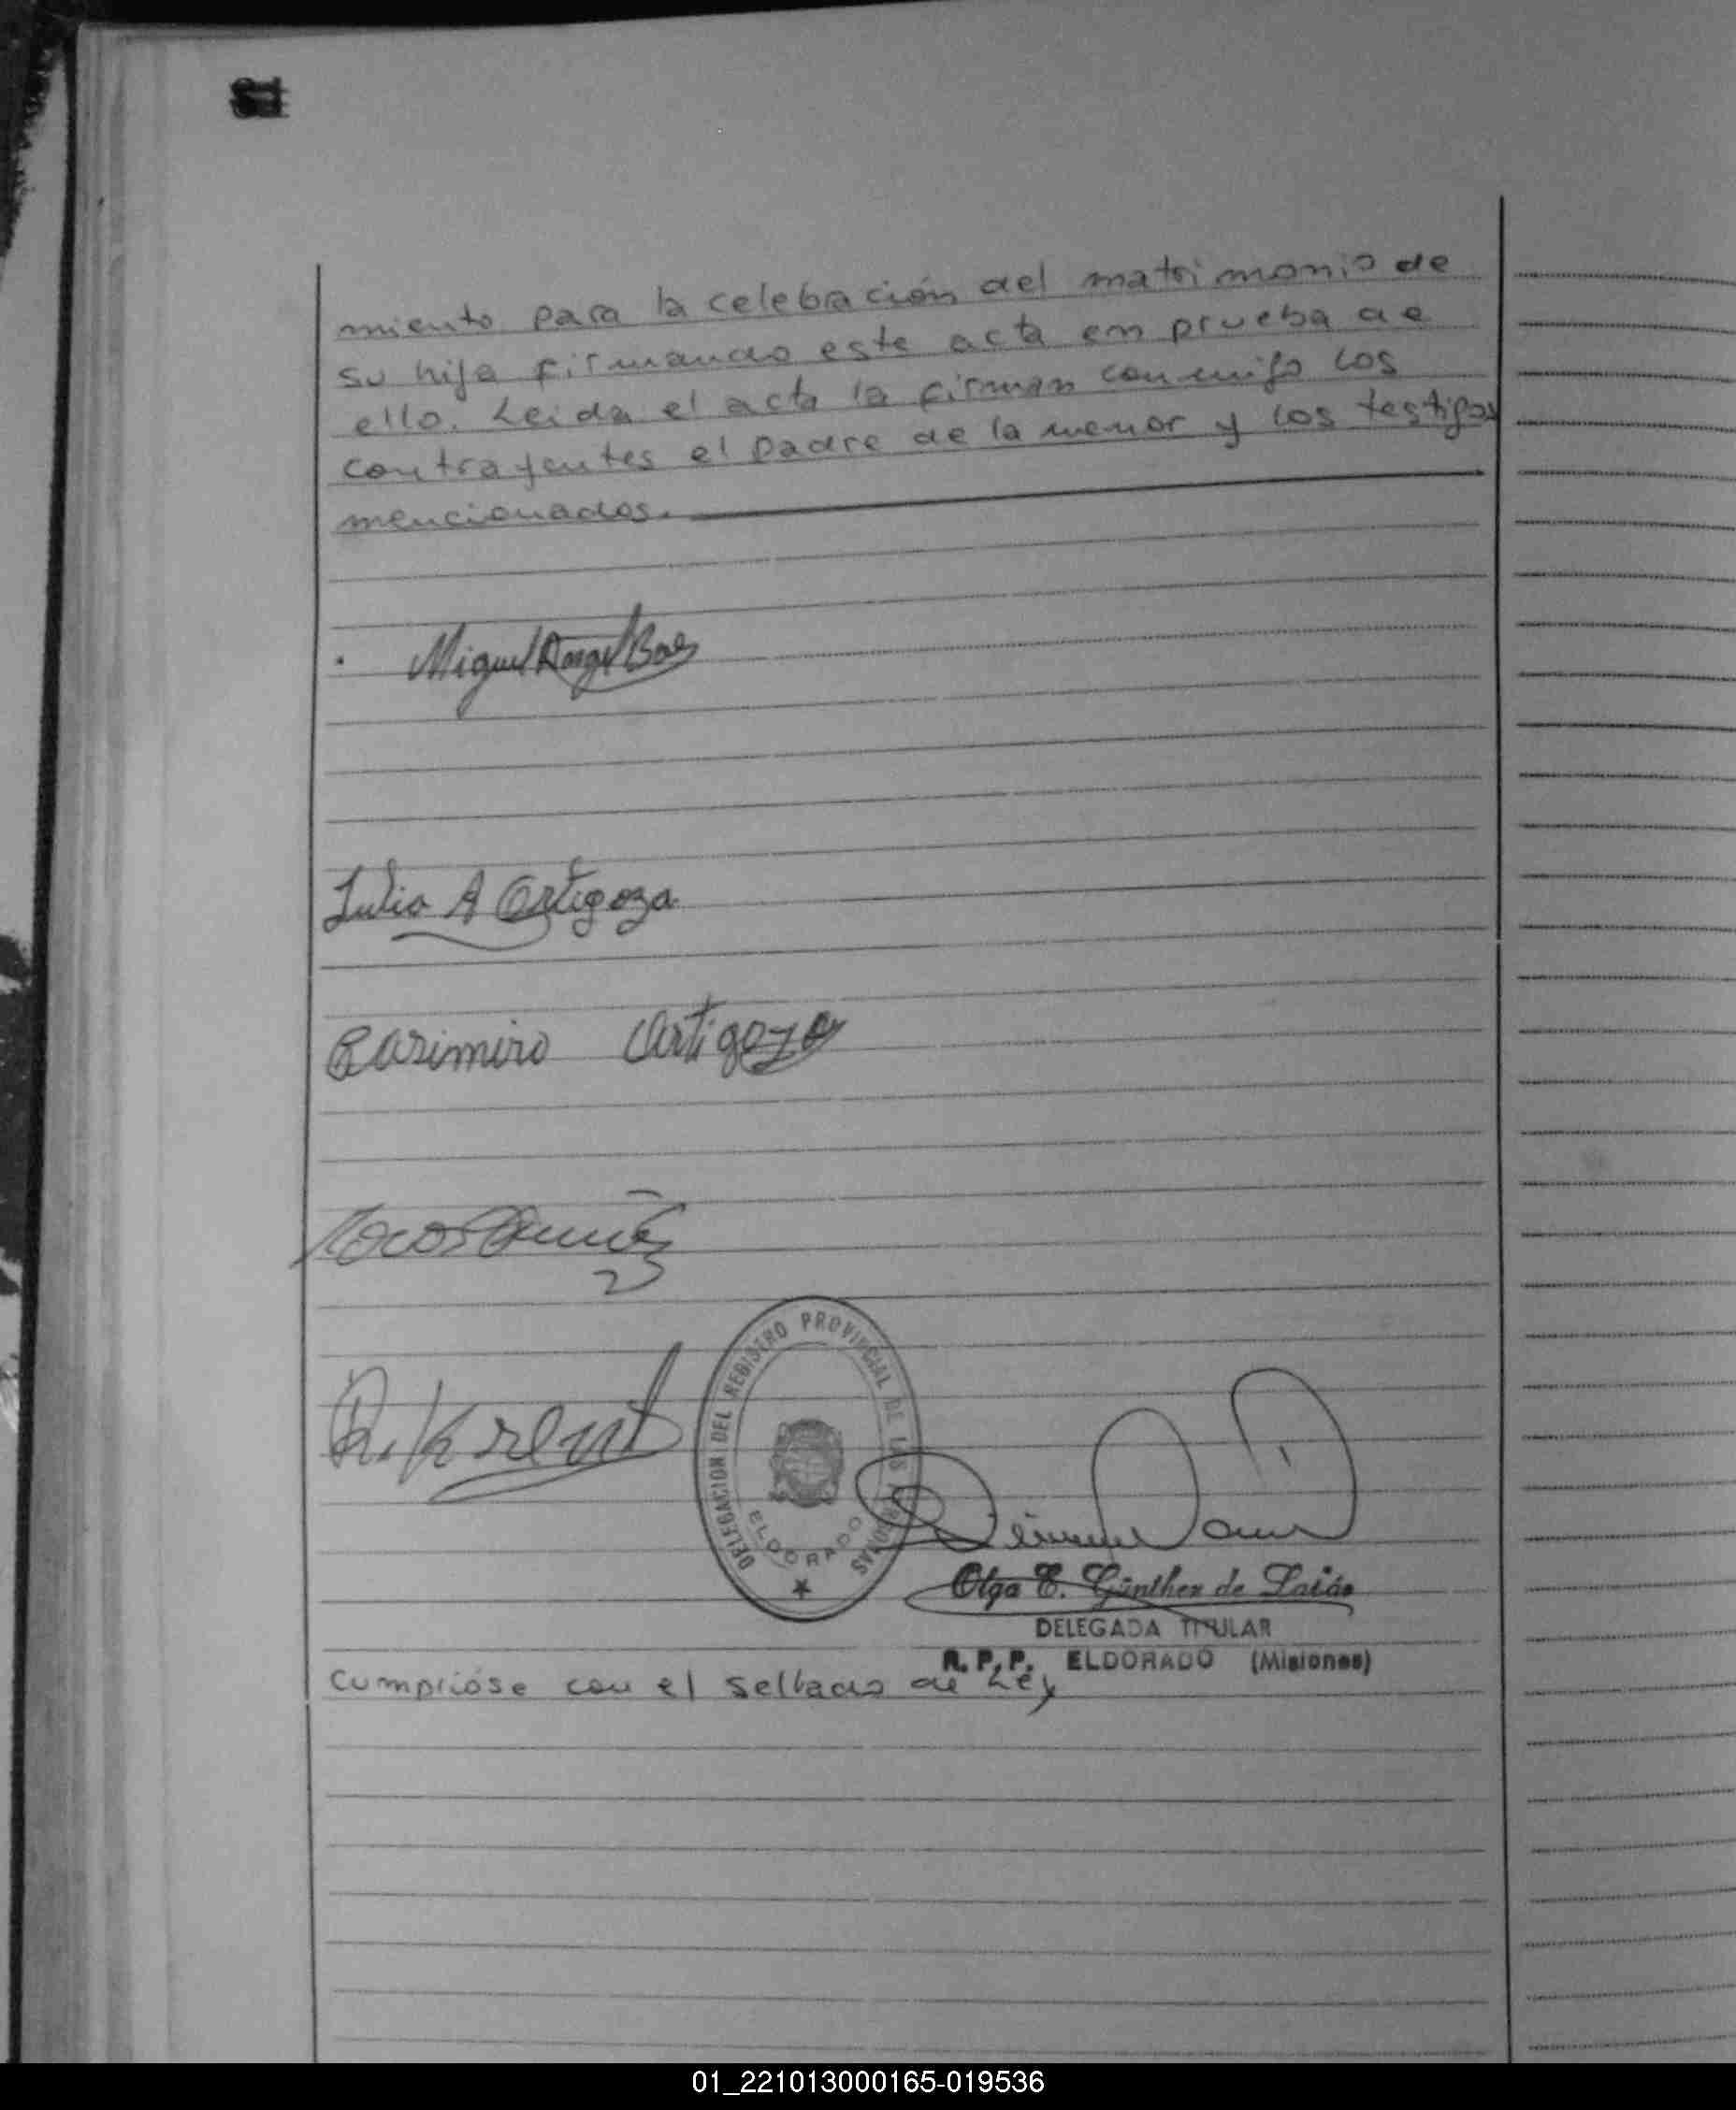 miento para la celebración del matrimonio de
su hija firmando este acta en prueba de
ello. Leida el acta la firman conmigo los
contrayentes el padre de la menor y los testigos
mencionados.
Miguel Angel Baes
Julio A Ortigoza
Casimiro Ortigoza
R. Krent
DELEGACION DEL REGISTRO PROVINCIAL DE LAS PERSONAS
ELDORADO
Olga E. Günther de
DELEGADA TITULAR
R.P.P. ELDORADO (Misiones)
Cumplióse con el sellado de Ley
01_221013000165-019536